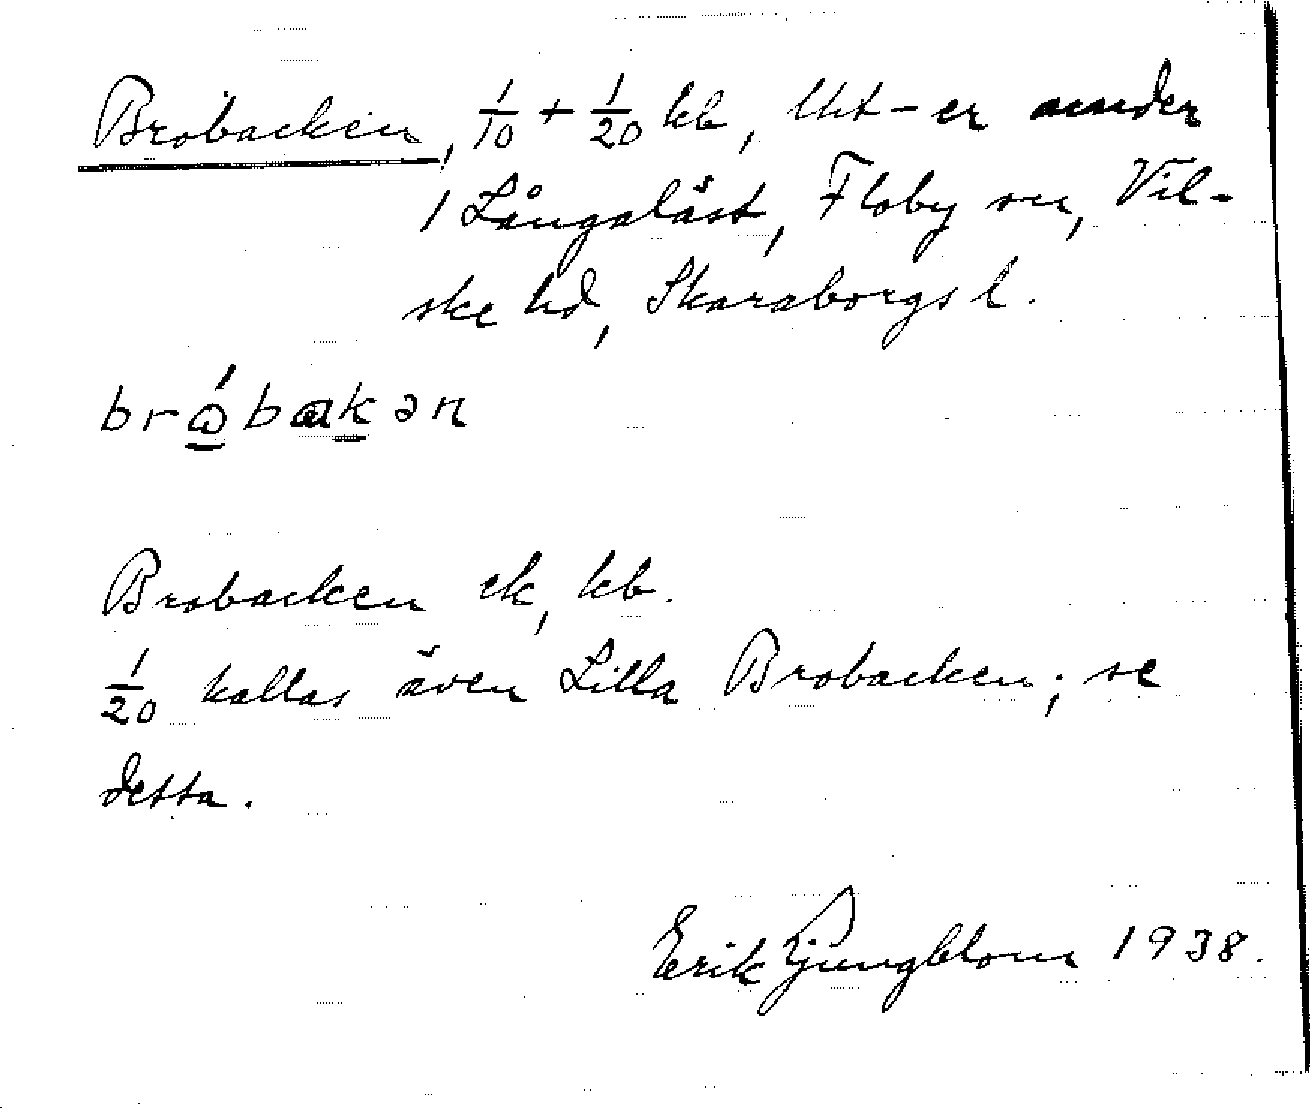 Brobacken, 1/10 + 1/20 hb, Utt-er under
1 Långalåst, Floby sn, Vil-
ske hd, Skaraborgs l.
brώbakən
Brobacken ek, kb.
1/20 kallas även Lilla Brobacken; se
detta.
Erik Ljungblom 1938.